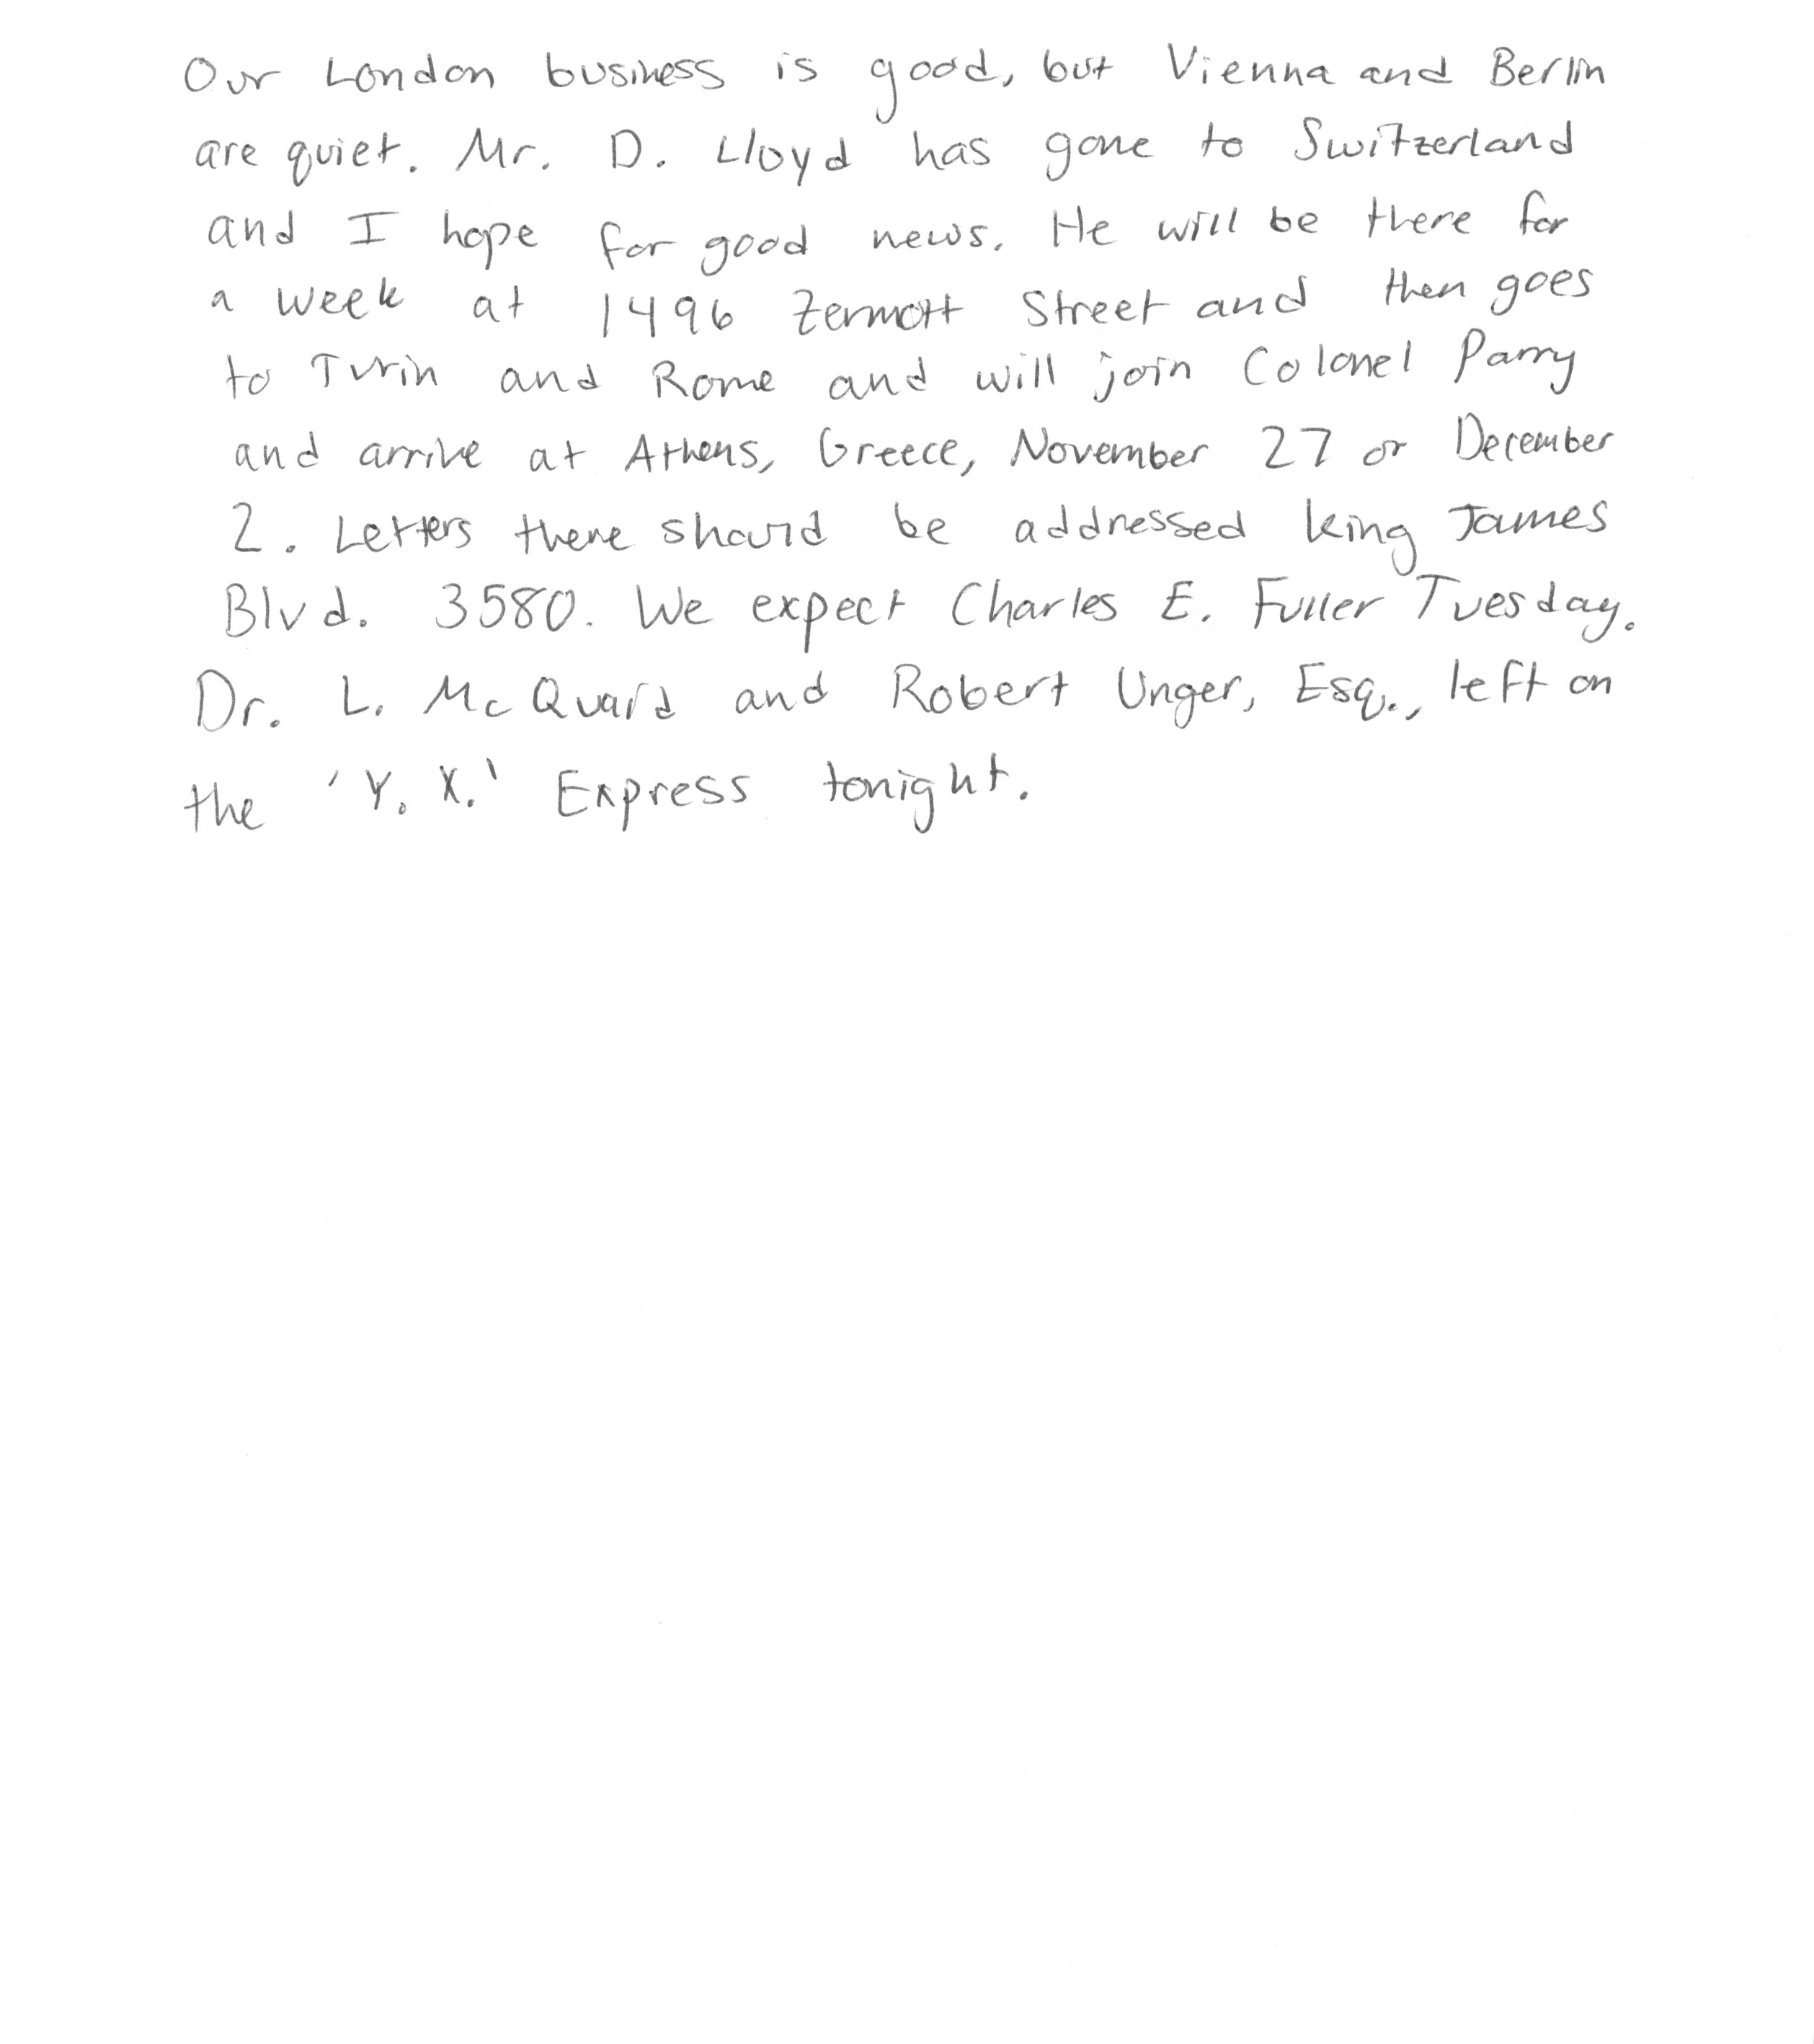 Our London business is good, but Vienna and Berlin
are quiet. Mr. D. Lloyd has gone to Switzerland
and I hope for good news. He will be there for
a week at 1496 Zermott Street and then goes
to Turin and Rome and will join Colonel Parry
and arrive at Athens, Greece, November 27 or December
2. Letters there should be addressed king James
Blvd. 3580. We expect Charles E. Fuller Tuesday.
Dr. L. McQuaid and Robert Unger, Esq., left on
the 'Y. X.' Express tonight.